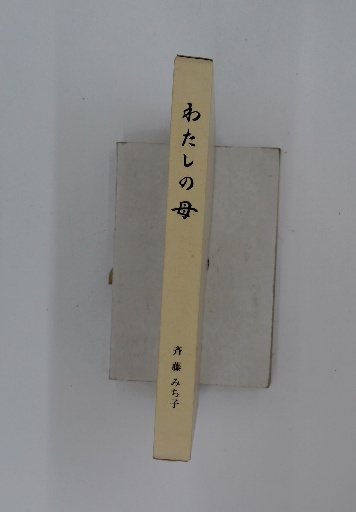 わたしの母
斉藤みち子